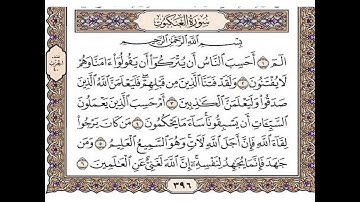 سورة العنكبوت
بسم الله الرحمن الرحيم
الٓمٓ ١ أَحَسِبَ النَّاسُ أَن يُتْرَكُوا أَن يَقُولُوا ءَامَنَّا وَهُمْ
لَا يُفْتَنُونَ ٢ وَلَقَدْ فَتَنَّا الَّذِينَ مِن قَبْلِهِمْ فَلَيَعْلَمَنَّ اللَّهُ الَّذِينَ
صَدَقُوا وَلَيَعْلَمَنَّ الْكَاذِبِينَ ٣ أَمْ حَسِبَ الَّذِينَ يَعْمَلُونَ
السَّيِّئَاتِ أَن يَسْبِقُونَا سَاءَ مَا يَحْكُمُونَ ٤ مَن كَانَ يَرْجُوا
لِقَاءَ اللَّهِ فَإِنَّ أَجَلَ اللَّهِ لَآتٍ وَهُوَ السَّمِيعُ الْعَلِيمُ ٥ وَمَن
جَاهَدَ فَإِنَّمَا يُجَاهِدُ لِنَفْسِهِ إِنَّ اللَّهَ لَغَنِيٌّ عَنِ الْعَالَمِينَ ٦
٣٩٦